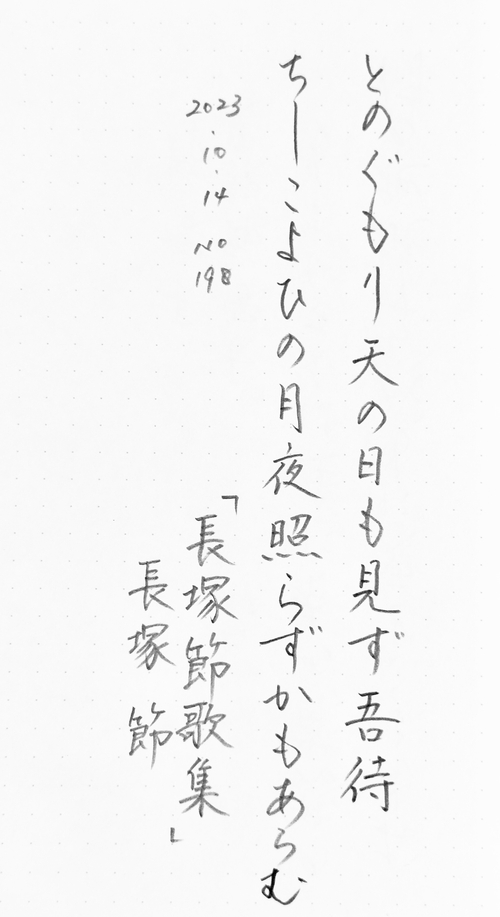 とのぐもり天の日も見ず吾待
ちしこよひの月夜照らずかもあらむ
2023.10.14 No198
「長塚節歌集」
長塚 節